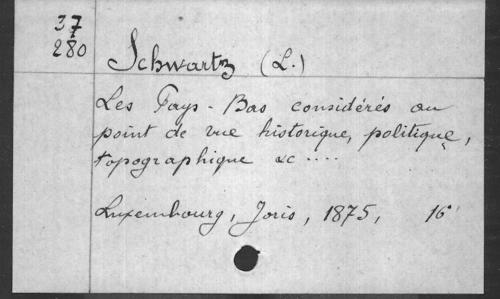 37
280
Schwartz (L.)
Les Pays-Bas considérés au
point de vue historique, politique,
topographique &c ....
Luxembourg, Joris, 1875, 16°